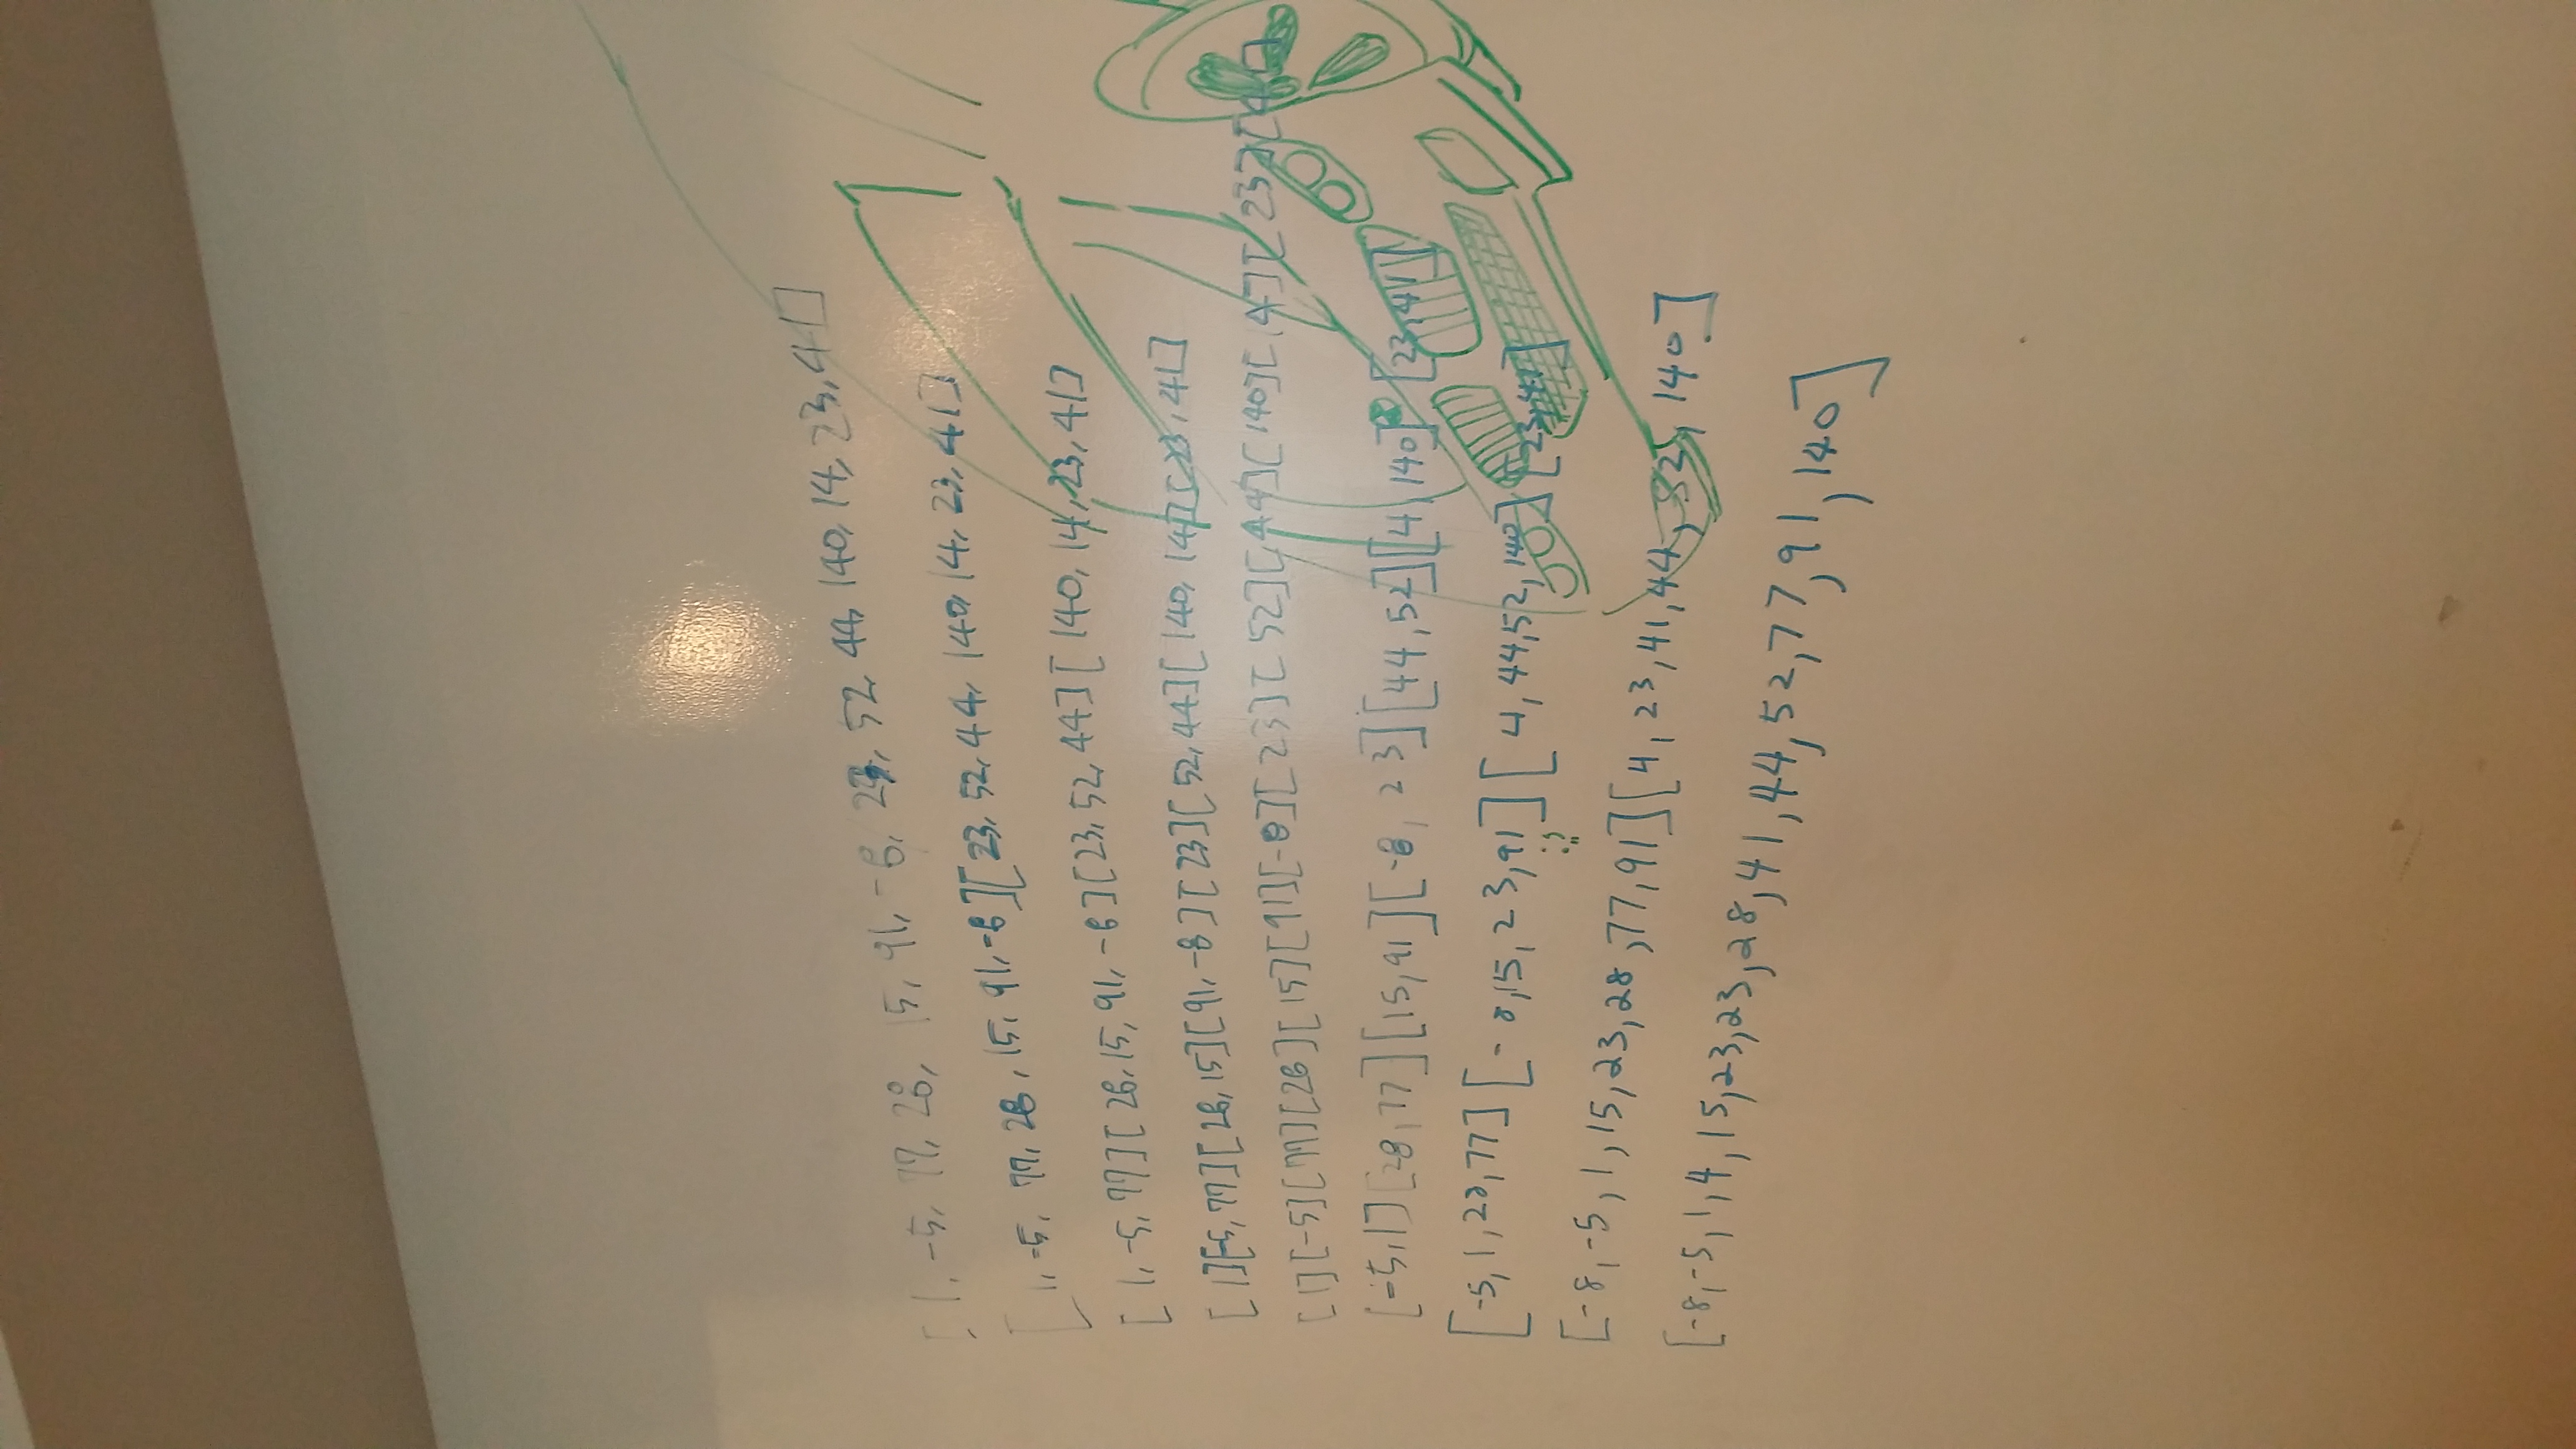 [1, -5, 77, 28, 15, 91, -8, 23, 52, 44, 140, 14, 23, 41]
[1, -5, 77, 28, 15, 91, -8][23, 52, 44, 140, 14, 23, 41]
[1, -5, 77][28, 15, 91, -8][23, 52, 44][140, 14, 23, 41]
[1][-5, 77][28, 15][91, -8][23][52, 44][140, 14][23, 41]
[1][-5][77][28][15][91][-8][23][52][44][140][14][23][41]
[-5, 1][28, 77][15, 91][-8, 23][44, 52][4, 140][23, 41]
[-5, 1, 28, 77][-8, 15, 23, 91][4, 44, 52, 140][23, 41]
[-8, -5, 1, 15, 23, 28, 77, 91][4, 23, 41, 44, 52, 140]
[-8, -5, 1, 4, 15, 23, 23, 28, 41, 44, 52, 77, 91, 140]